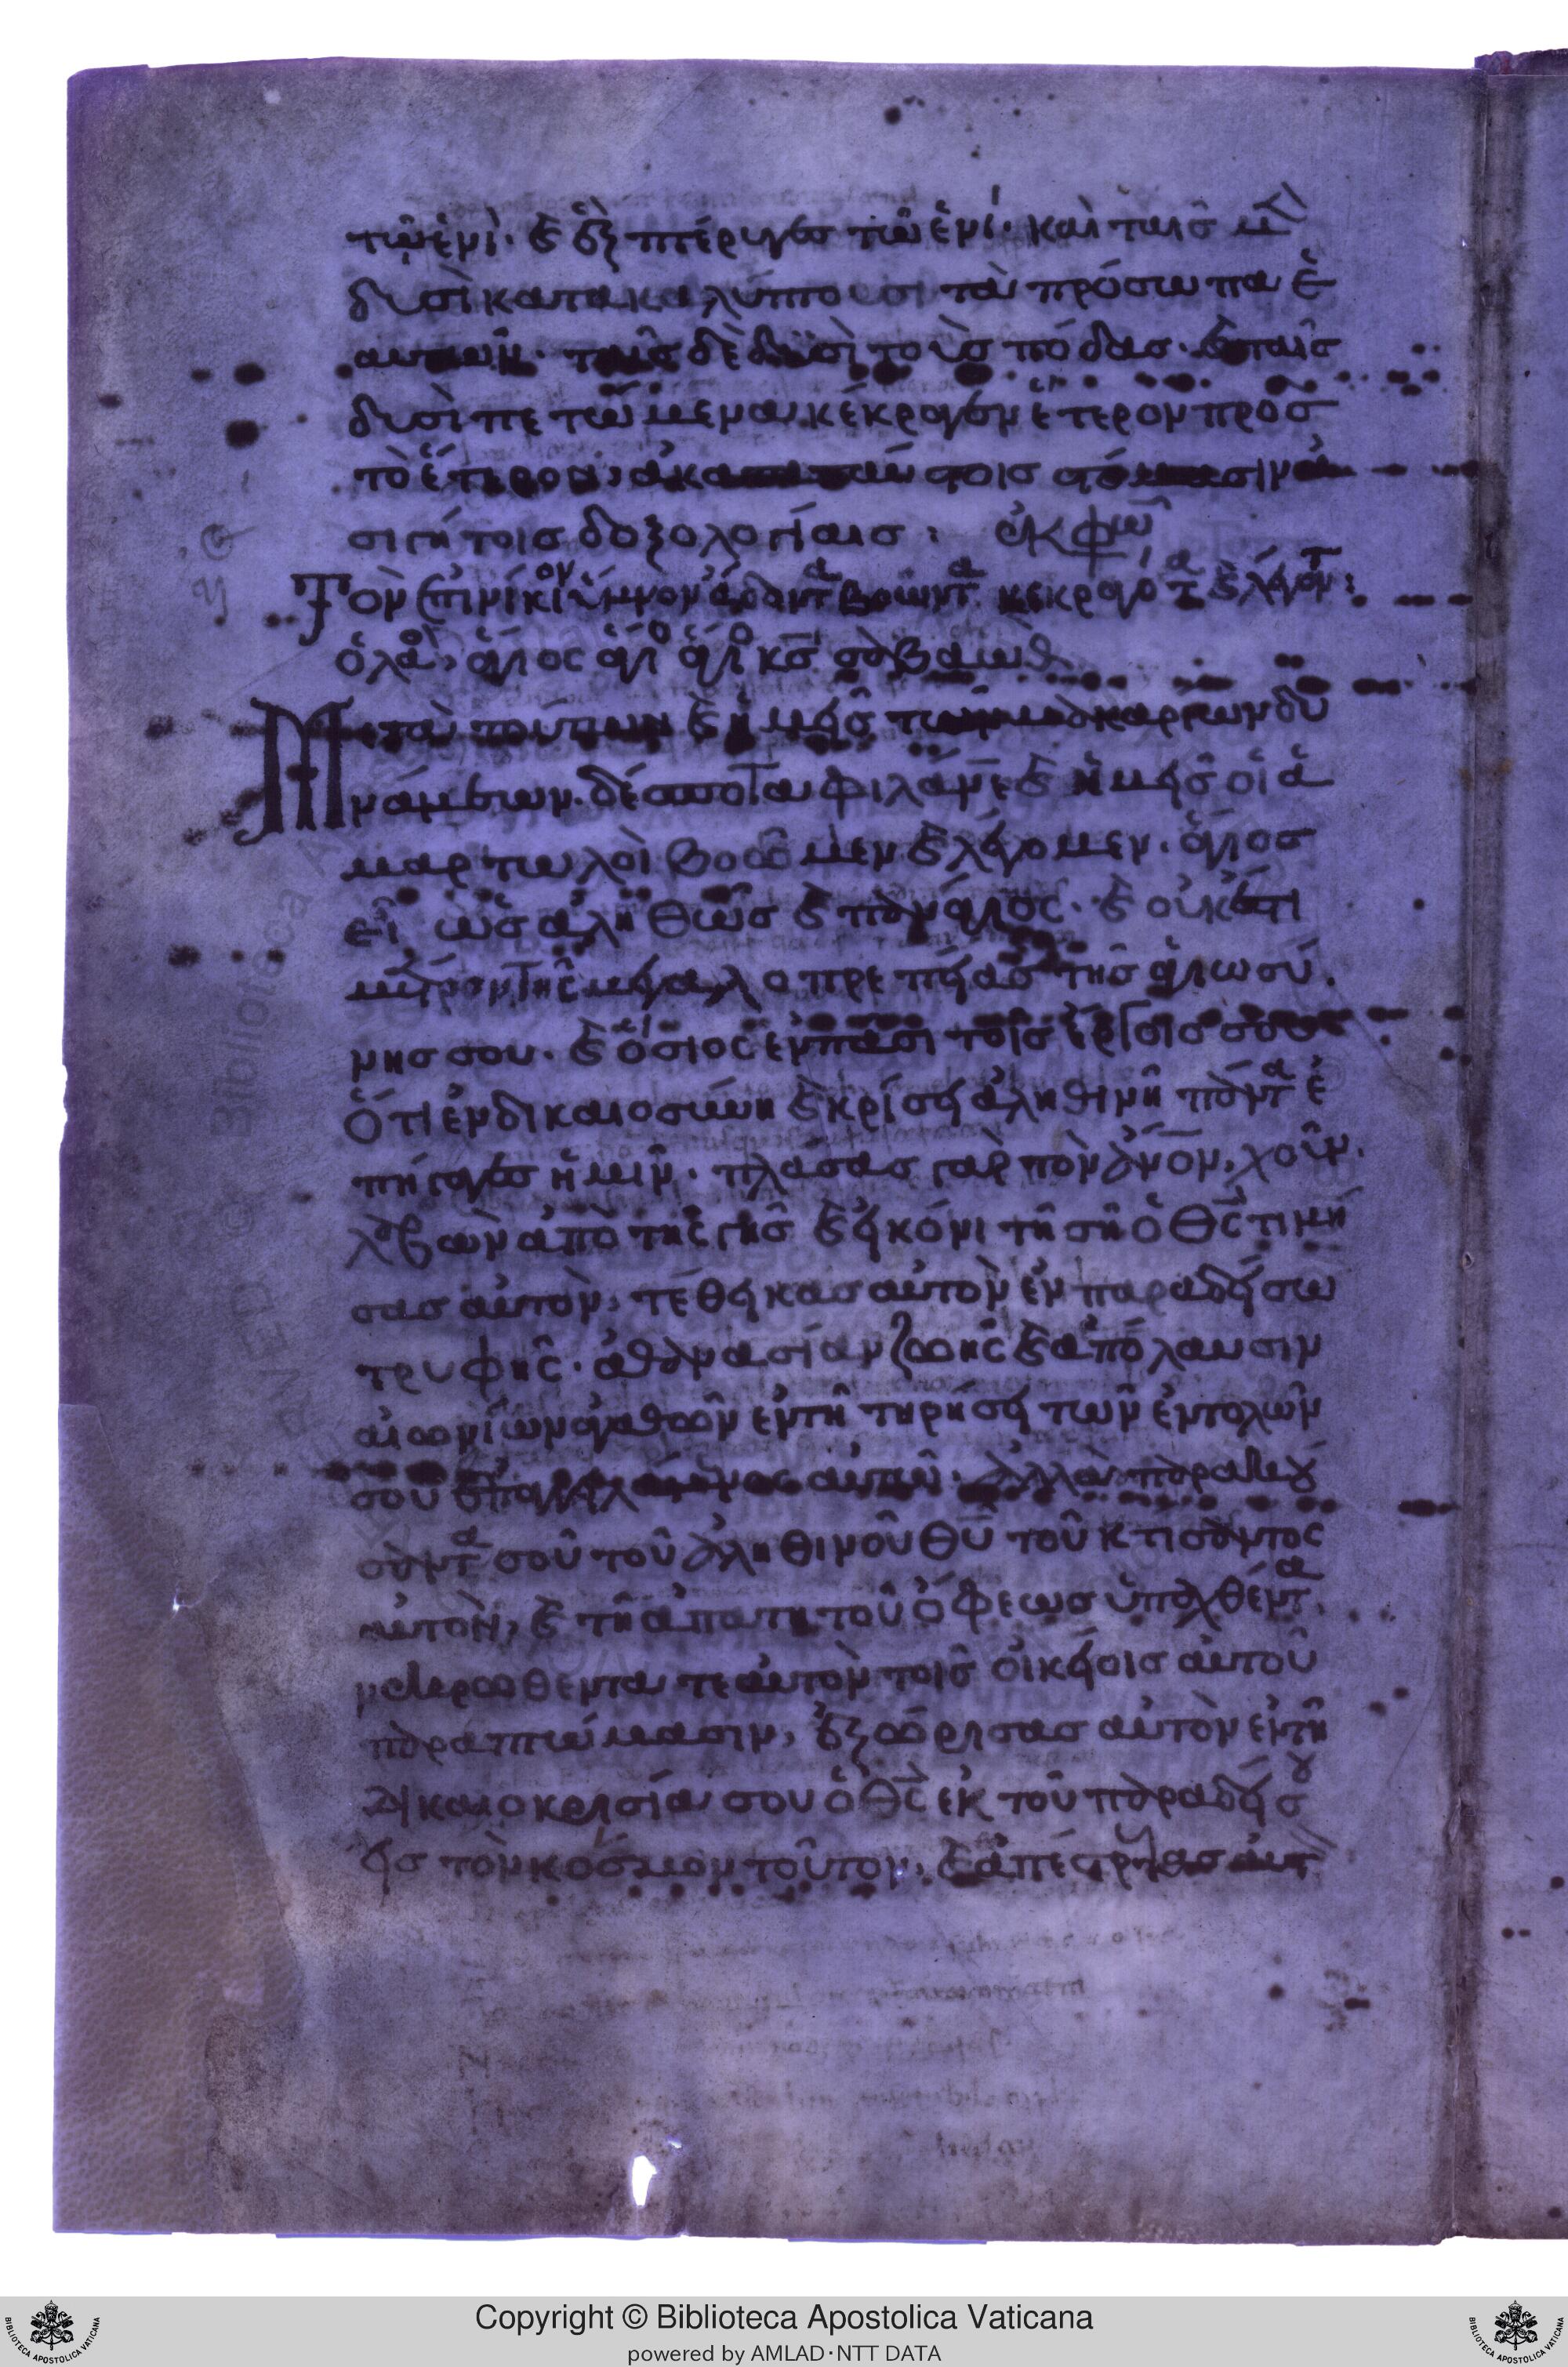 τῶ ἑνὶ· καὶ ἓξ πτέρυγες τῶ ἑνί· καὶ ταῖς μὲν
δυσὶ κατακαλύπτουσι τὰ πρόσωπα ἑ
αυτῶν· ταῖς δὲ δυσὶ τοὺς πόδας· καὶ ταῖς
δυσὶ πετώμενα κέκραγεν ἕτερον πρὸς
τὸ ἕτερον, ἀκαταπαύστοις στόμασιν ἀ
σιγήτοις δοξολογίαις: ἐκφω
Τὸν ἐπινίκιον ὕμνον ἄδοντα βοῶντα κεκραγότα καὶ λέγοντ:
ὁ λαὸ, ἅγιος ἅγιο ἅγιο κς σαβαώθ
Μετὰ τούτων καὶ ἡμεῖς τῶν μακαρίων δυ
νάμεων. δέσποτα φιλάνε καὶ ἡμεῖς οἱ ἁ
μαρτωλοὶ βοῶμεν καὶ λέγομεν. ἅγιος
εἶ ὡς ἀληθῶς καὶ πανάγιος· καὶ οὐκ ἔστι
μέτρον τῆς μεγαλοπρεπείας τῆς ἁγιωσύ
νης σου. καὶ ὅσιος ἐν πᾶσι τοῖς ἔργοις σου
ὅτι ἐν δικαιοσύνη καὶ κρίσει ἀληθινῆ πάντα ἐ
πήγαγες ἡμῖν. πλάσας γὰρ τὸν ἄνον, χοῦν
λαβὼν ἀπὸ τῆς γῆς καὶ εἰκόνι τῆ σῆ ὁ θς τιμή
σας αὐτὸν, τέθεικας αὐτὸν ἐν παραδείσω
τρυφῆς. ἀθανασίαν ζωῆς καὶ ἀπόλαυσιν
αἰωνίων ἀγαθῶν ἐν τῆ τηρήσει τῶν ἐντολῶν
σου ἐπαγγειλάμενος αὐτῶ. ἀλλὰ παρακού
σαντα σοῦ τοῦ ἀληθινοῦ θυ τοῦ κτίσαντος
αὐτὸν, καὶ τῆ ἀπάτη τοῦ ὄφεως ὑπαχθέντα,
νεκρωθέντα τε αὐτὸν τοῖς οἰκείοις αὐτοῦ
παραπτώμασιν, ἐξώρισας αὐτὸν ἐν τῆ
δικαιοκρισία σου ὁ θς ἐκ τοῦ παραδείσου
εἰς τὸν κόσμον τοῦτον, καὶ ἀπέστρεψας αὐτ
Copyright © Biblioteca Apostolica Vaticana
powered by AMLAD·NTT DATA